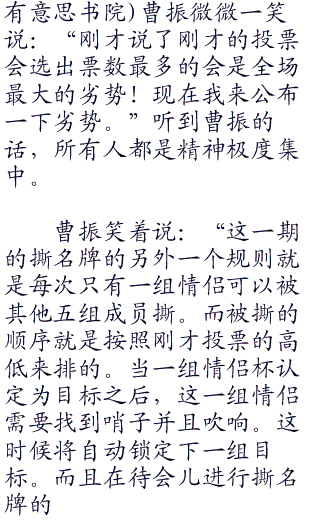 有意思书院)曹振微微一笑
说：“刚才说了刚才的投票
会选出票数最多的会是全场
最大的劣势！现在我来公布
一下劣势。”听到曹振的
话，所有人都是精神极度集
中。
曹振笑着说：“这一期
的撕名牌的另外一个规则就
是每次只有一组情侣可以被
其他五组成员撕。而被撕的
顺序就是按照刚才投票的高
低来排的。当一组情侣杯认
定为目标之后，这一组情侣
需要找到哨子并且吹响。这
时候将自动锁定下一组目
标。而且在待会儿进行撕名
牌的